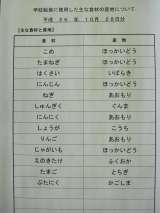 学校給食に使用した主な食材の産地について
平成２４年１０月２５日分
【主な食材と産地】
食材 産地
こめ ほっかいどう
たまねぎ ほっかいどう
はくさい いばらき
にんじん ほっかいどう
ねぎ あおもり
しゅんぎく ぐんま
にんにく あおもり
しょうが こうち
りんご あおもり
じゃがいも ほっかいどう
えのきたけ ふくおか
たまご とちぎ
ぶたにく かごしま